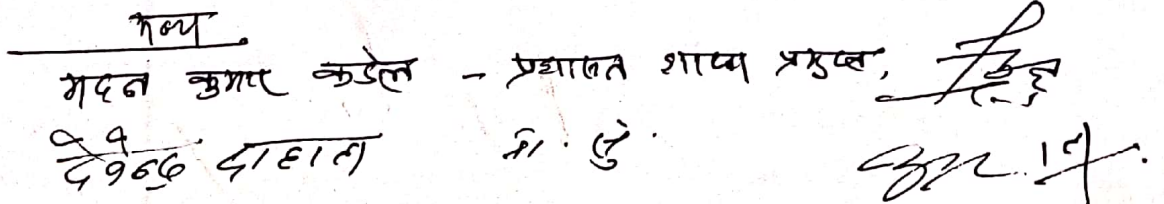 अन्य
मदन कुमार कडेल - प्रशासन शाखा प्रमुख,
देवेन्द्र दाहाल